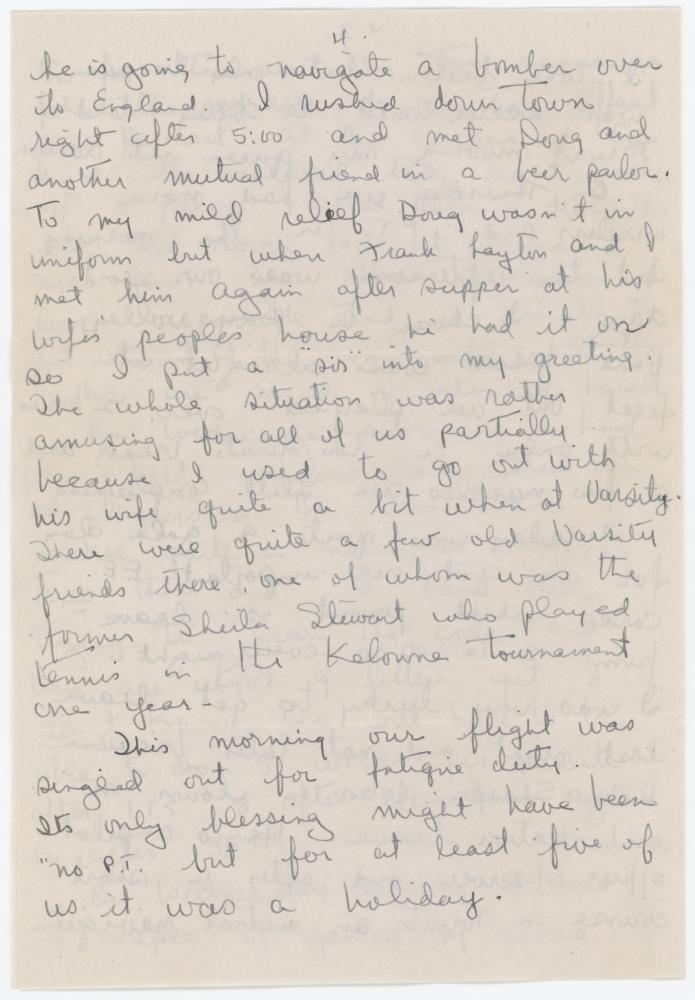 4.
he is going to navigate a bomber over
to England. I rushed down town
right after 5:00 and met Doug and
another mutual friend in a beer parlor.
To my mild relief Doug wasn't in
uniform but when Frank Layton and I
met him again after supper at his
wife's peoples house he had it on
so I put a "sir" into my greeting.
The whole situation was rather
amusing for all of us partially
because I used to go out with
his wife quite a bit when at Varsity.
There were quite a few old Varsity
friends there, one of whom was the
former Sheila Stewart who played
tennis in the Kelowna tournament
one year -
This morning our flight was
singled out for fatigue duty.
Its only blessing might have been
"no P.T. but for at least five of
us it was a holiday.